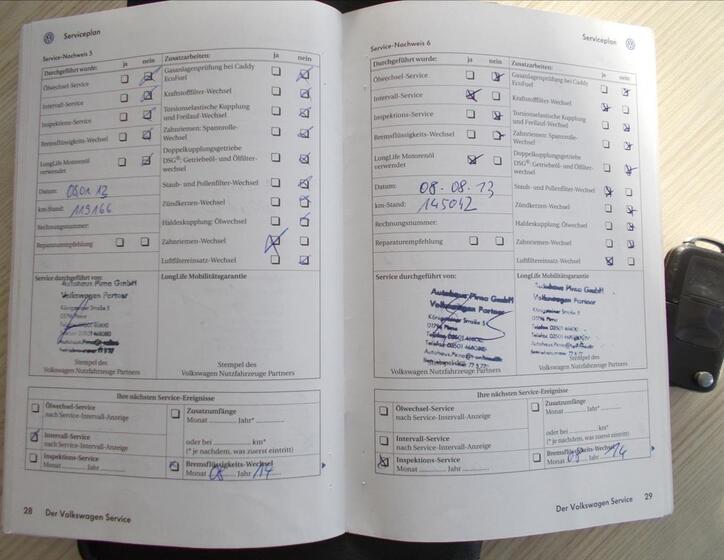 Serviceplan
Service-Nachweis 5
Durchgeführt wurde: ja nein
Ölwechsel-Service
Intervall-Service
Inspektions-Service
Bremsflüssigkeits-Wechsel
LongLife Motorenöl
verwendet
Datum:
km-Stand: 119166
Rechnungsnummer:
Reparaturempfehlung
Zusatzarbeiten: ja nein
Gasanlagenprüfung bei Caddy
EcoFuel
Kraftstofffilter-Wechsel
Torsionselastische Kupplung
und Freilauf-Wechsel
Zahnriemen- Spannrolle-
Wechsel
Doppelkupplungsgetriebe
DSG®: Getriebeöl- und Ölfilter-
wechsel
Staub- und Pollenfilter-Wechsel
Zündkerzen-Wechsel
Haldeskupplung: Ölwechsel
Zahnriemen-Wechsel
Luftfiltereinsatz-Wechsel
Service durchgeführt von:
Autohaus Pirna GmbH
Volkswagen Partner
Stempel des
Volkswagen Nutzfahrzeuge Partners
LongLife Mobilitätsgarantie
Stempel des
Volkswagen Nutzfahrzeuge Partners
Ihre nächsten Service-Ereignisse
Ölwechsel-Service
nach Service-Intervall-Anzeige
Intervall-Service
nach Service-Intervall-Anzeige
Inspektions-Service
Monat Jahr
Zusatzumfänge
Monat Jahr*
oder bei km*
(* je nachdem, was zuerst eintritt)
Bremsflüssigkeits-Wechsel
Monat 08 Jahr 14
28 Der Volkswagen Service
Serviceplan
Service-Nachweis 6
Durchgeführt wurde: ja nein
Ölwechsel-Service
Intervall-Service
Inspektions-Service
Bremsflüssigkeits-Wechsel
LongLife Motorenöl
verwendet
Datum: 08.08.13
km-Stand: 145042
Rechnungsnummer:
Reparaturempfehlung
Zusatzarbeiten: ja nein
Gasanlagenprüfung bei Caddy
EcoFuel
Kraftstofffilter-Wechsel
Torsionselastische Kupplung
und Freilauf-Wechsel
Zahnriemen: Spannrolle-
Wechsel
Doppelkupplungsgetriebe
DSG®: Getriebeöl- und Ölfilter-
wechsel
Staub- und Pollenfilter-Wechsel
Zündkerzen-Wechsel
Haldeskupplung: Ölwechsel
Zahnriemen-Wechsel
Luftfiltereinsatz-Wechsel
Service durchgeführt von:
Autohaus Pirna GmbH
Volkswagen Partner
Stempel des
Volkswagen Nutzfahrzeuge Partners
LongLife Mobilitätsgarantie
Autohaus Pirna GmbH
Volkswagen Partner
Stempel des
Volkswagen Nutzfahrzeuge Partners
Ihre nächsten Service-Ereignisse
Ölwechsel-Service
nach Service-Intervall-Anzeige
Intervall-Service
nach Service-Intervall-Anzeige
Inspektions-Service
Monat Jahr
Zusatzumfänge
Monat Jahr*
oder bei km*
(* je nachdem, was zuerst eintritt)
Bremsflüssigkeits-Wechsel
Monat Jahr 14
Der Volkswagen Service 29